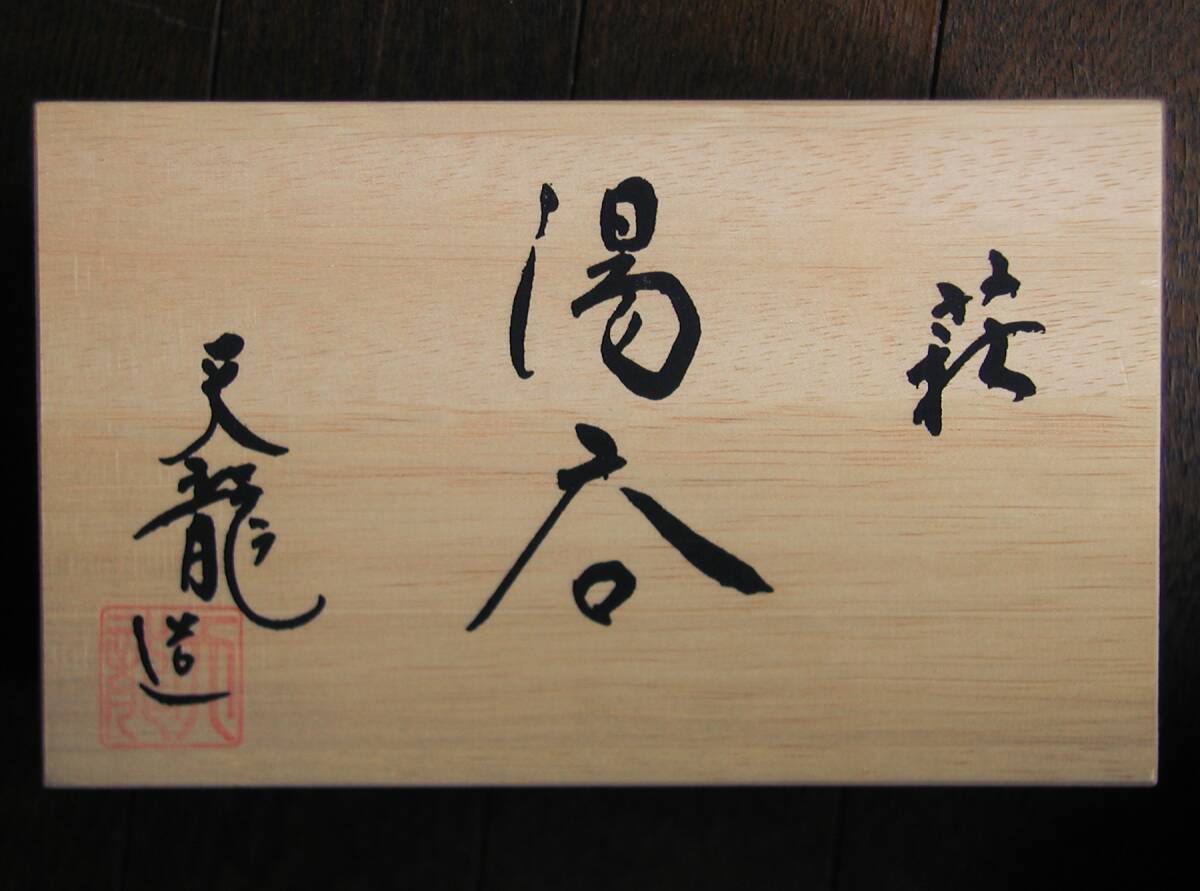 萩
湯呑
天龍造